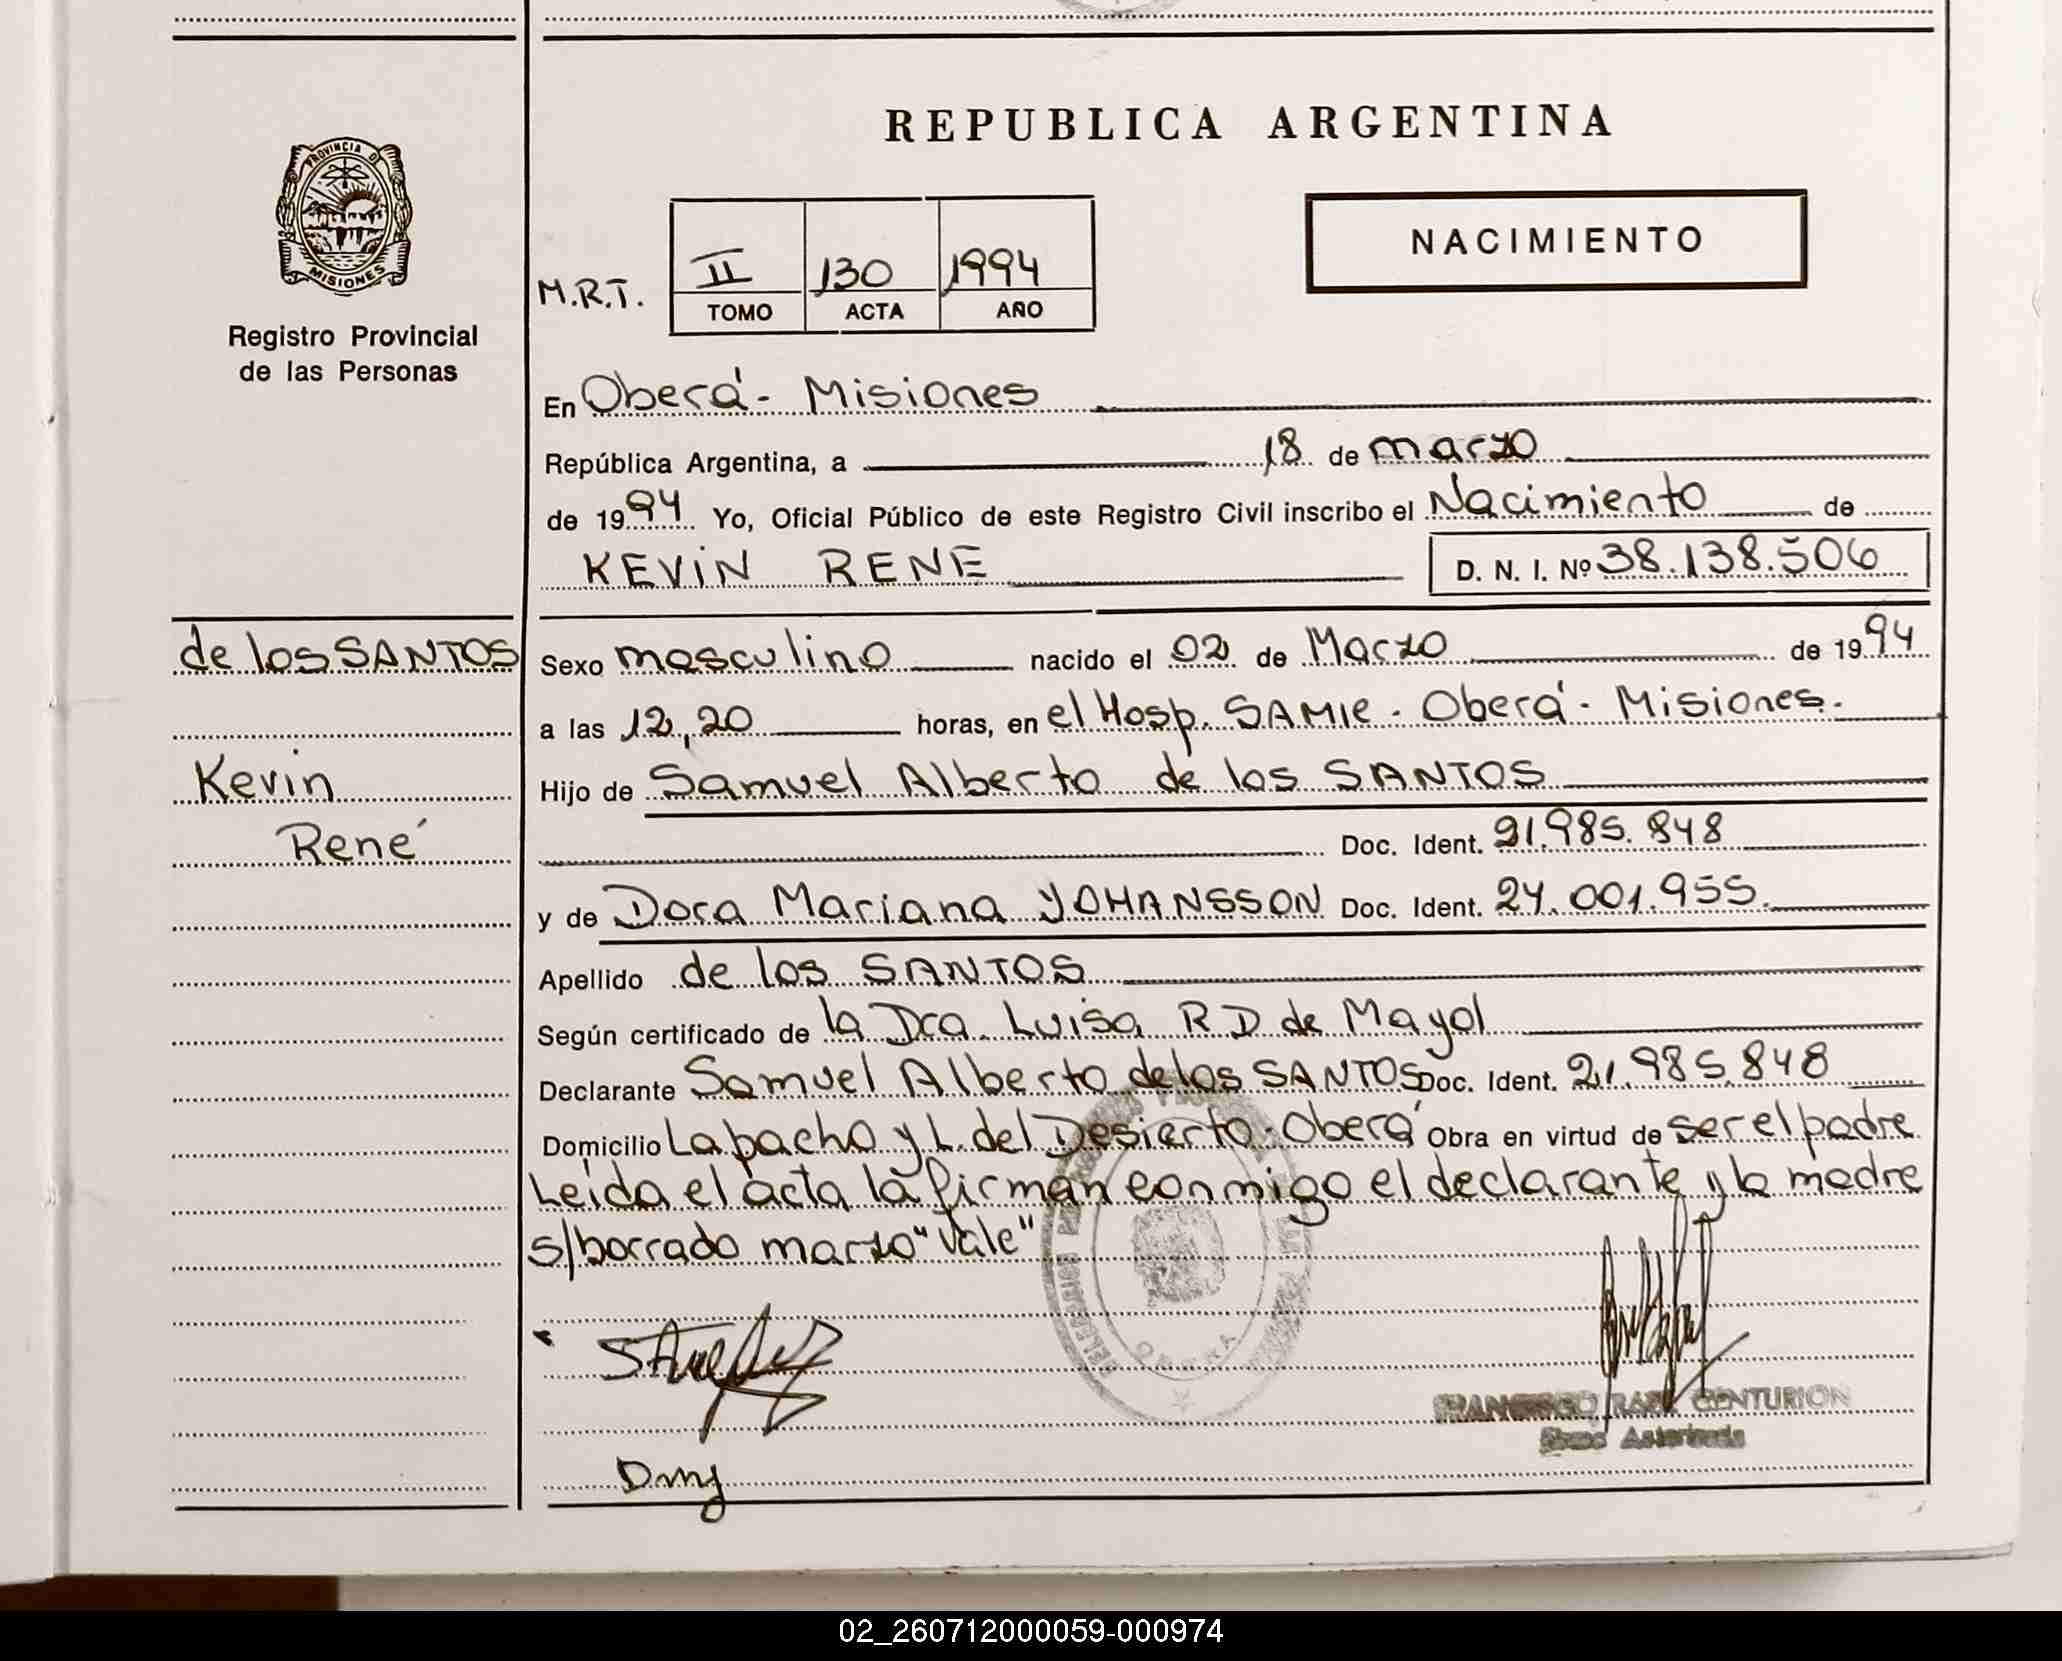 REPUBLICA ARGENTINA
PROVINCIA D
MISIONES
Registro Provincial
de las Personas
NACIMIENTO
M.R.T.
II 130 1994
TOMO ACTA AÑO
En Oberá - Misiones
República Argentina, a 18 de marzo
de 1994 Yo, Oficial Público de este Registro Civil inscribo el Nacimiento de
KEVIN RENE D. N. I. Nº 38.138.506
de los SANTOS
Kevin
René
Sexo masculino nacido el 02 de Marzo de 1994
a las 12,20 horas, en el Hosp. SAMIC - Oberá - Misiones.
Hijo de Samuel Alberto de los SANTOS
Doc. Ident. 21.985.848
y de Dora Mariana YOHANSSON Doc. Ident. 24.001.955.
Apellido de los SANTOS
Según certificado de la Dra. Luisa R D de Mayol
Declarante Samuel Alberto de los SANTOS Doc. Ident. 21.985.848
Domicilio Lapacho y L. del Desierto - Oberá Obra en virtud de ser el padre
Leída el acta la firman conmigo el declarante y la madre
s/borrado marzo "Vale"
OBERA
CENTURION
02_260712000059-000974